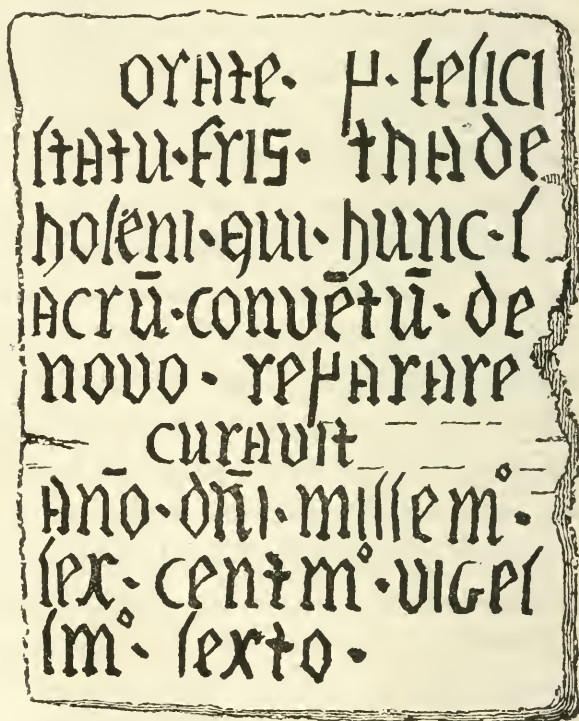 orate· p· felici
ſtatu·fris· thade
holeni·qui·hunc·ſ
acrū·convētū·de
novo· reparare
curavit
An̄o·dn̄i·millem°·
ſex·centm°·vigeſ
im°· ſexto·